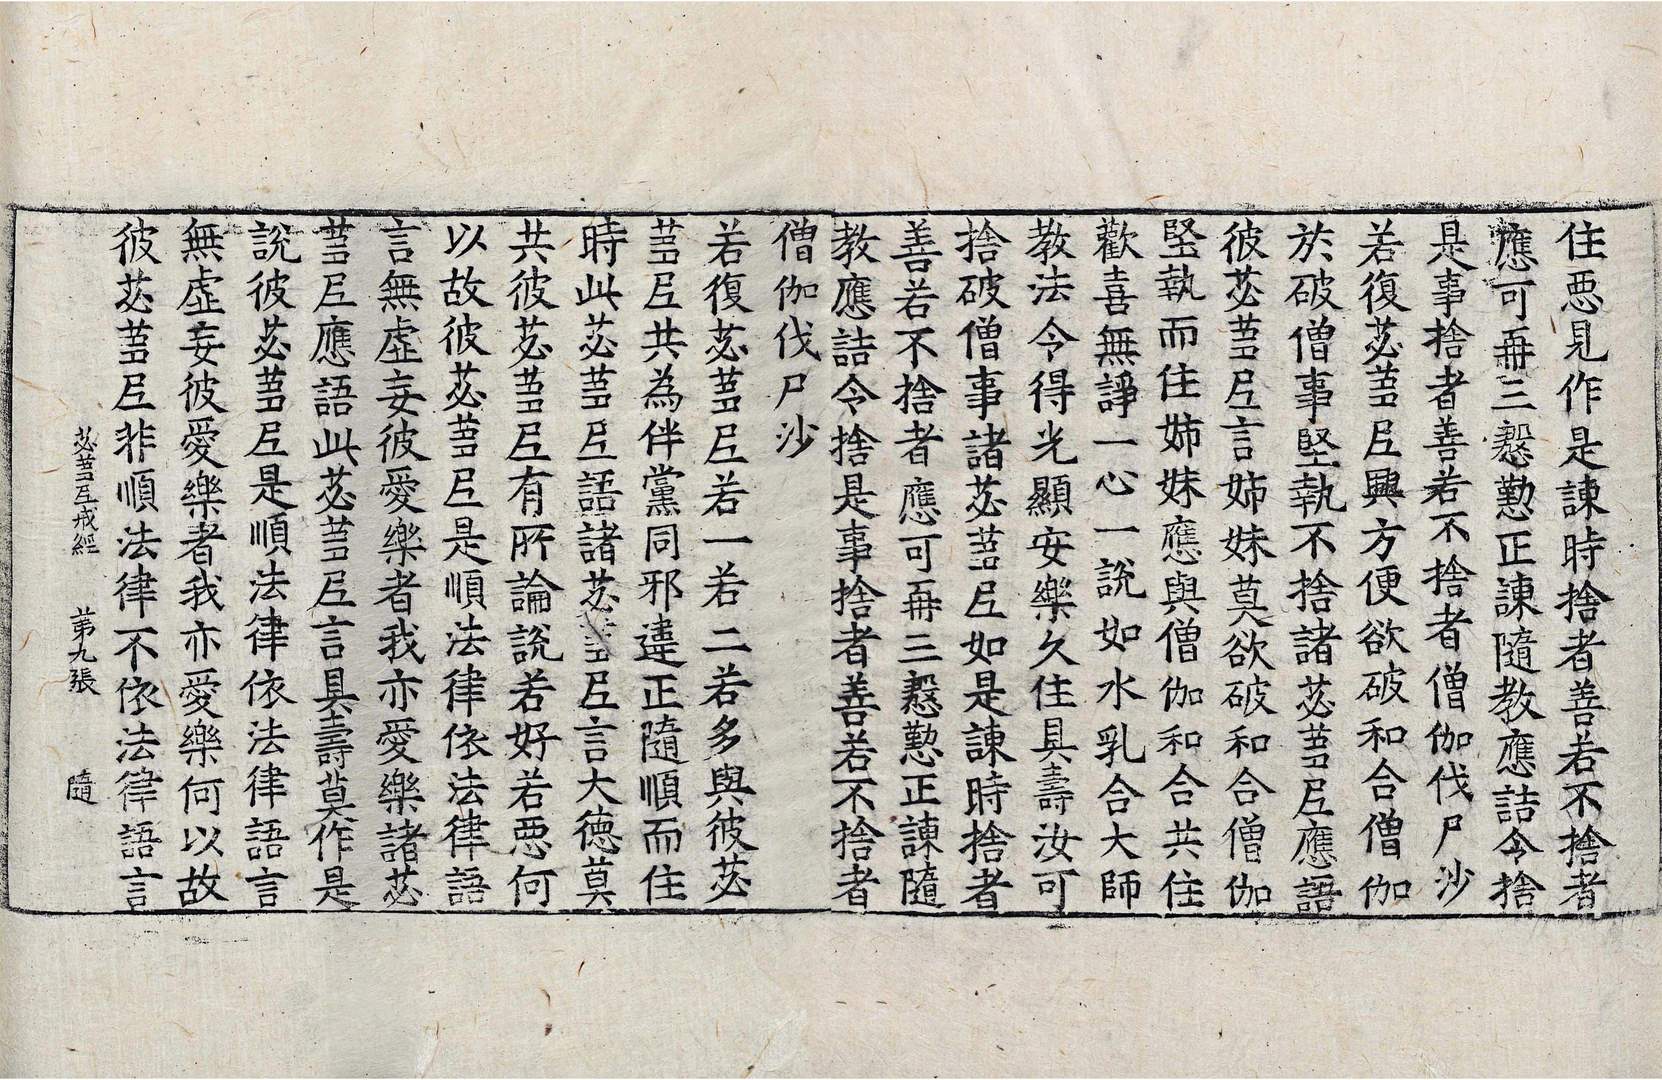 住悪見作是諫時捨者善若不捨者
應可再三慇懃正諫隨教應詰令捨
是事捨者善若不捨者僧伽伐尸沙
若復苾蒭尼興方便欲破和合僧伽
於破僧事堅執不捨諸苾蒭尼應語
彼苾蒭尼言姊妹莫欲破和合僧伽
堅執而住姊妹應與僧伽和合共住
歡喜無諍一心一說如水乳合大師
教法令得光顯安樂久住具壽汝可
捨破僧事諸苾蒭尼如是諫時捨者
善若不捨者應可再三慇懃正諫隨
教應詰令捨是事捨者善若不捨者
僧伽伐尸沙
若復苾蒭尼若一若二若多與彼苾
蒭尼共為伴黨同邪違正隨順而住
時此苾蒭尼語諸苾蒭尼言大德莫
共彼苾蒭尼有所論說若好若悪何
以故彼苾蒭尼是順法律依法律語
言無虛妄彼愛樂者我亦愛樂諸苾
蒭尼應語此苾蒭尼言具壽莫作是
說彼苾蒭尼是順法律依法律語言
無虛妄彼愛樂者我亦愛樂何以故
彼苾蒭尼非順法律不依法律語言
苾蒭尼戒經 苐九張 隨